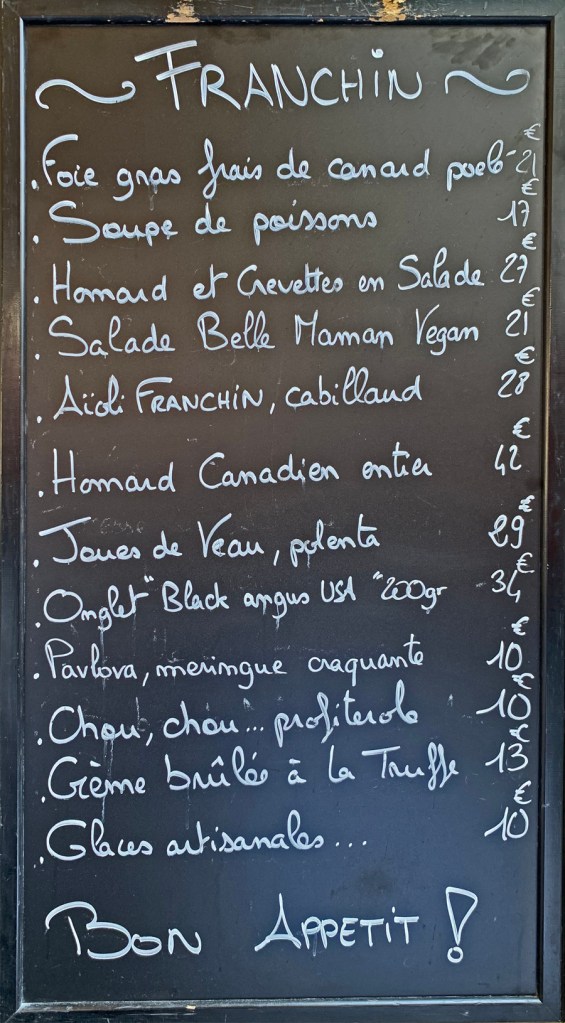 ~ FRANCHIN ~
. Foie gras frais de canard poelé 21 €
. Soupe de poissons 17 €
. Homard et Crevettes en Salade 27 €
. Salade Belle Maman Vegan 21 €
. Aïoli FRANCHIN, cabillaud 28 €
. Homard Canadien entier 42 €
. Joues de Veau, polenta 29 €
. Onglet "Black angus USA" 200gr 34 €
. Pavlova, meringue craquante 10 €
. Chou, chou... profiterole 10 €
. Crème brûlée à la Truffe 13 €
. Glaces artisanales... 10 €
BON APPETIT !